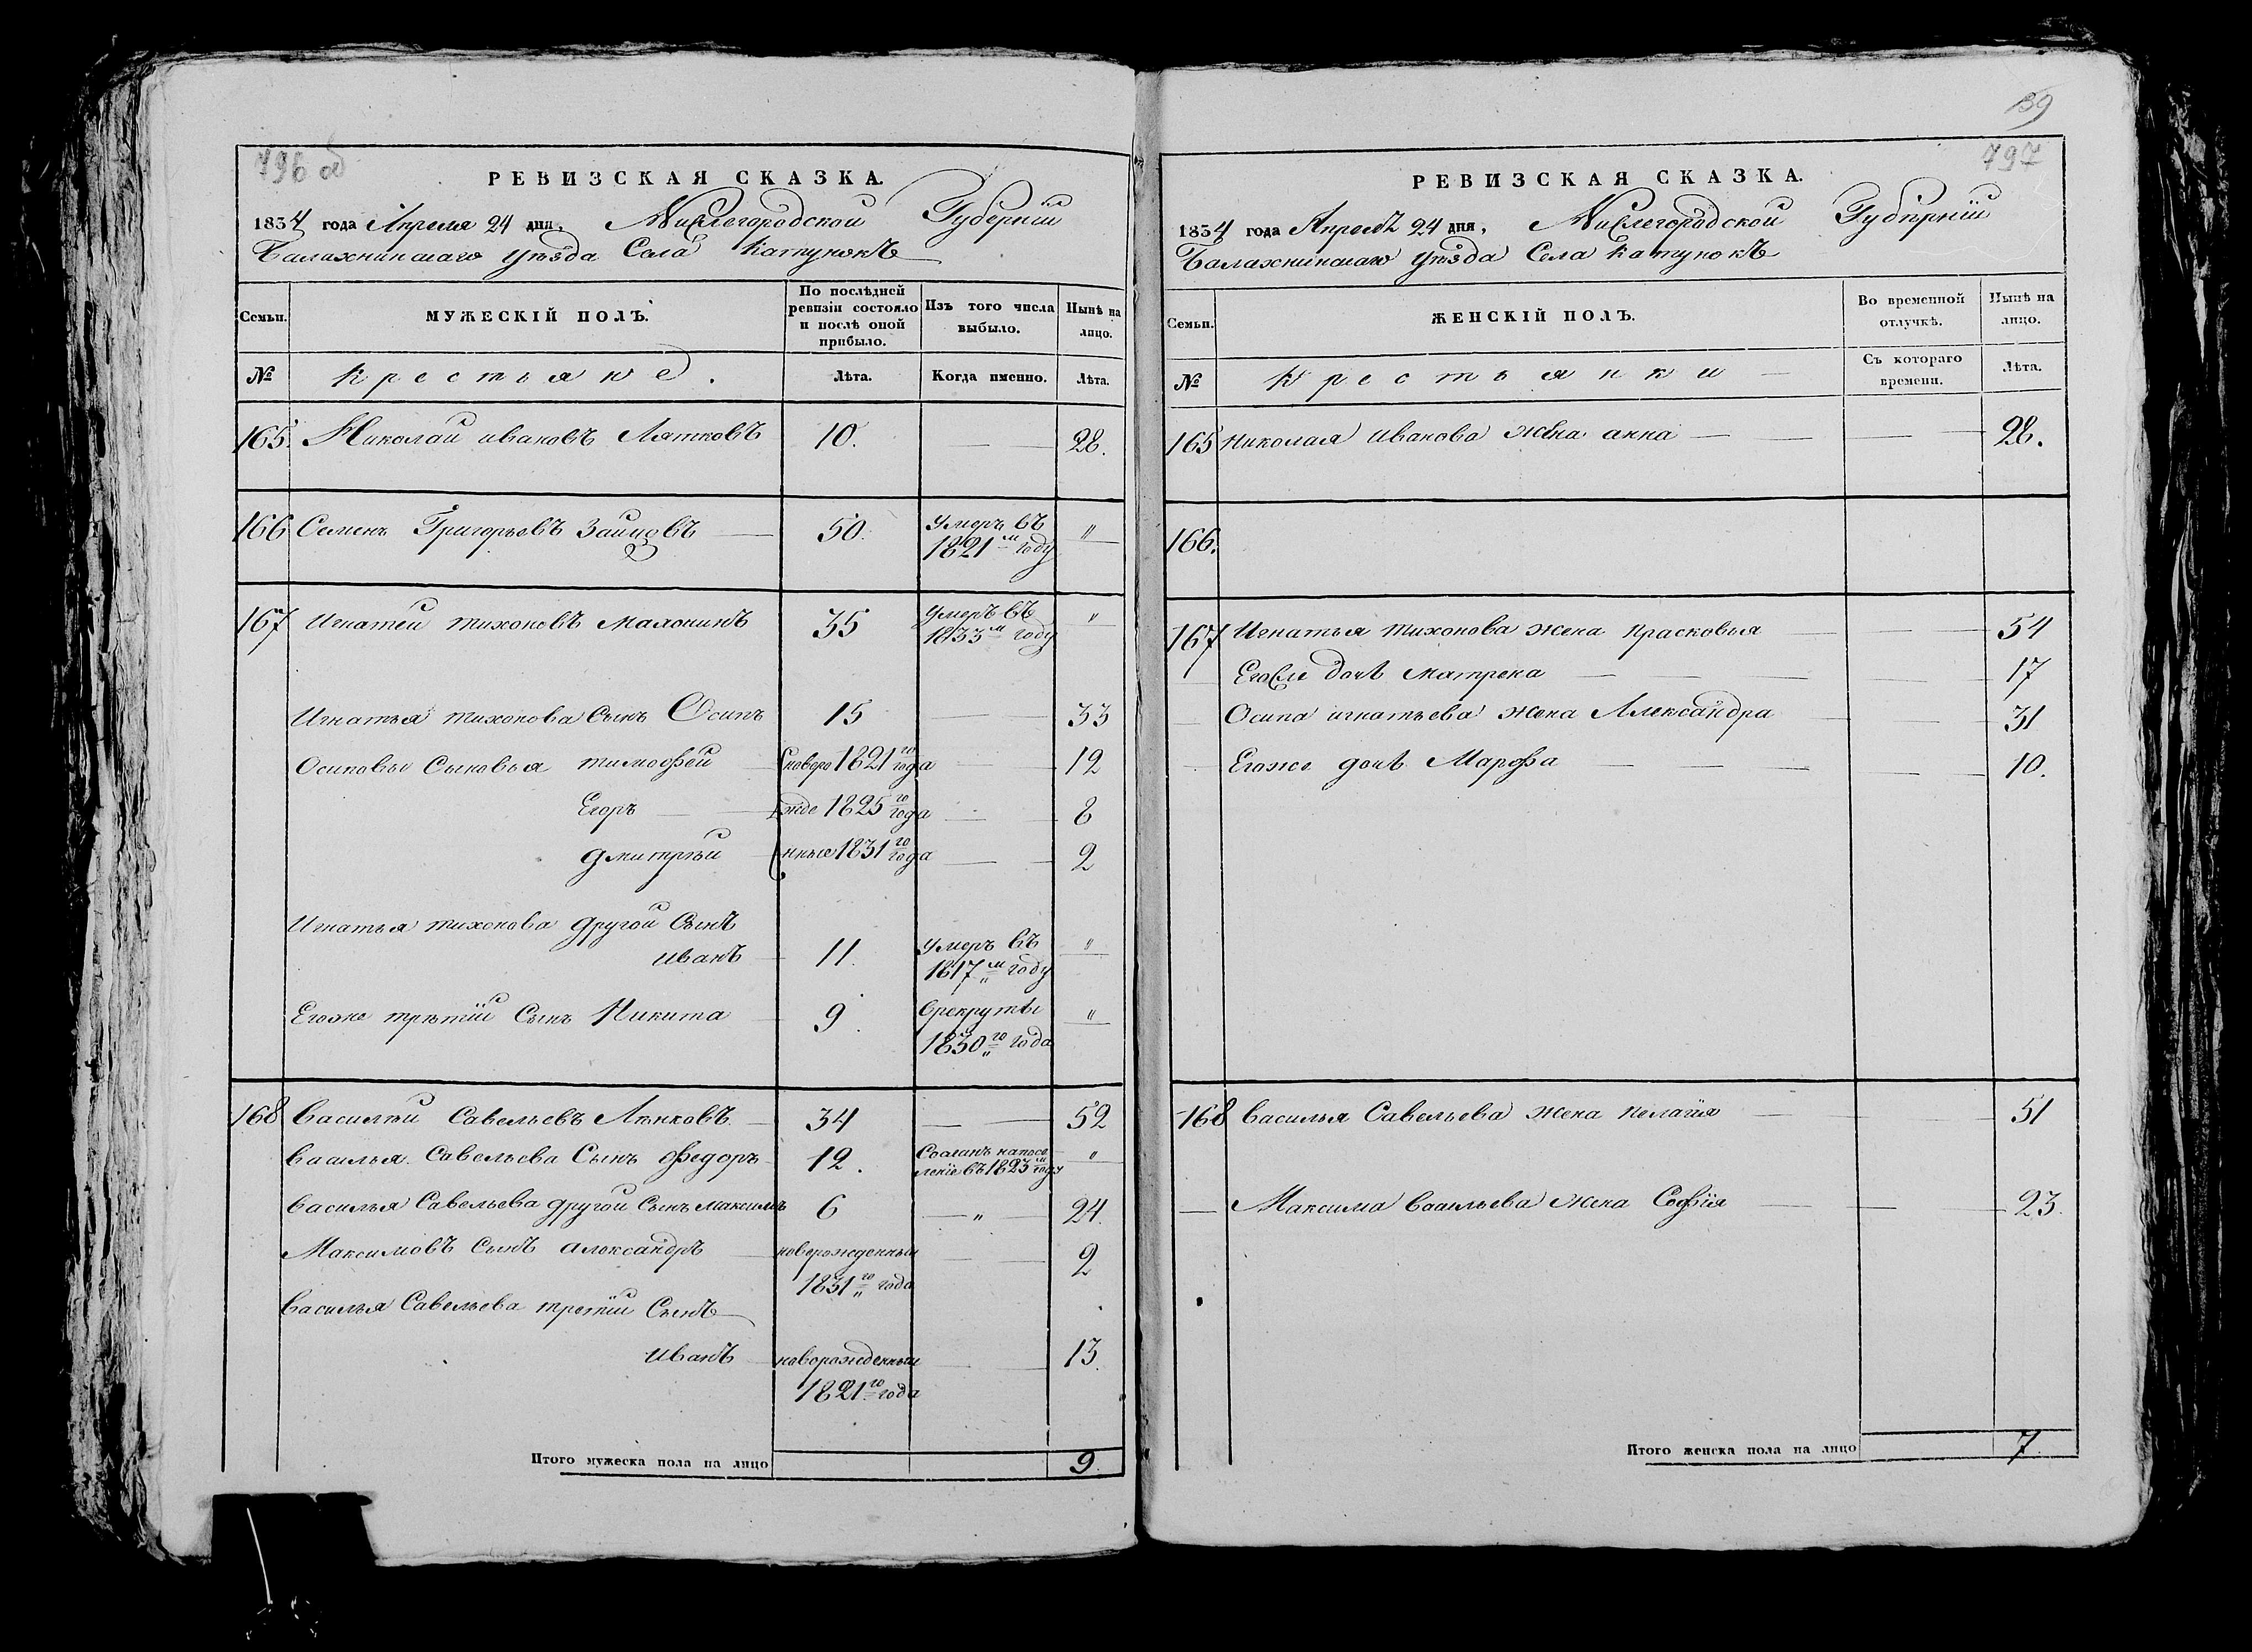 796 об
РЕВИЗСКАЯ СКАЗКА.
1834 года Апреля 24 дня, Нижегородской Губерніи
Балахнинскаго уѣзда Села Катунокъ
Семьи.
МУЖЕСКІЙ ПОЛЪ.
По послѣдней
ревизіи состояло
и послѣ оной
прибыло.
Изъ того числа
выбыло.
Нынѣ на
лицо.
№
Крестьяне.
Лѣта.
Когда именно.
Лѣта.
165. Николай ивановъ Лятковъ 10. — 28.
166 Семенъ Григорьевъ Зайцовъ — 50. умеръ въ 1821м году "
167 Игнатей тихоновъ Малонинъ 35 умеръ въ 1833м году "
Игнатья тихонова Сынъ Осипъ 15 — 33
Осиповы Сыновья тимофей новоро 1821го года — 12
Егоръ — жде 1825го года — 8
дмитрѣй нные 1831го года — 2
Игнатья тихонова другой Сынъ
иванъ 11. умеръ въ 1817м году "
Егоже третій Сынъ Никита 9. Врекруты 1830го года "
168 Василѣй Савельевъ Лѣнковъ — 34 — 52
Василья Савельева Сынъ Федоръ 12. Сосланъ напосе
леніе въ 1823м году "
Василья Савельева другой Сынъ максимъ 6 — " 24.
Максимовъ Сынъ александръ новорожденный — 2
1831го года
Василья Савельева третій Сынъ
иванъ новорожденный — 13.
1821го года
Итого мужеска пола на лицо 9.
139
797
РЕВИЗСКАЯ СКАЗКА.
1834 года Апреля 24 дня, Нижегородской Губерніи
Балахнинскаго уѣзда Села Катунокъ
Семьи.
ЖЕНСКІЙ ПОЛЪ.
Во временной
отлучкѣ.
Нынѣ на
лицо.
№
Крестьянки —
Съ котораго
времени.
Лѣта.
165 Николая Иванова жена анна — 28.
166.
167 Игнатья тихонова жена прасковья — 54
Егоже дочь матрена — 17
Осипа игнатьева жена Александра 31
Егоже дочь Марфа — 10.
168 Василья Савельева жена пелагія — 51
— Максима Васильева жена Софія — 23.
Итого женска пола на лицо 7.